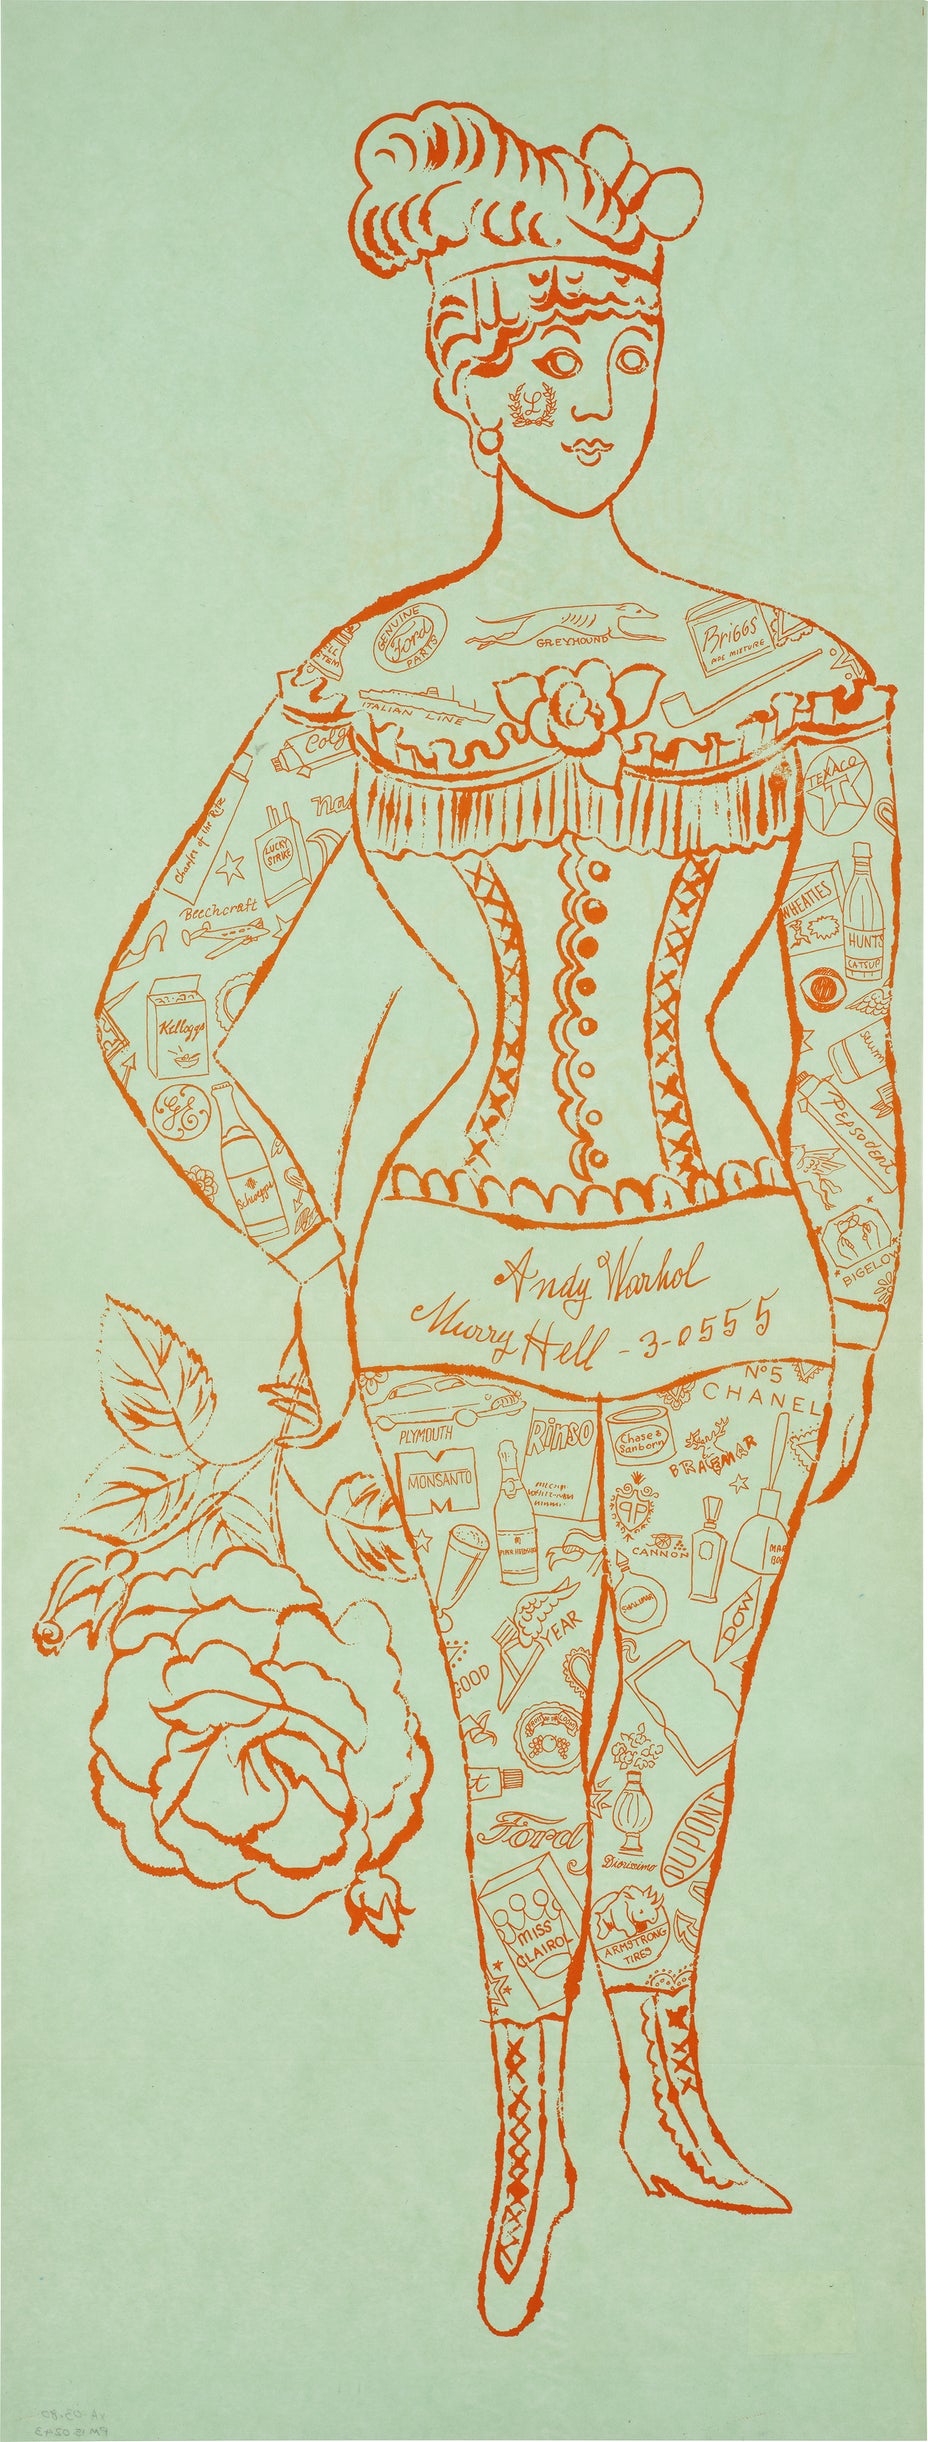 L
GENUINE
Ford
PARTS
GREYHOUND
Briggs
PIPE MIXTURE
ITALIAN LINE
Colg
Charles of the Ritz
LUCKY
STRIKE
Beechcraft
Kellogg's
GE
Schweppes
TEXACO
T
WHEATIES
HUNTS
CATSUP
Pepsodent
BIGELOW
Andy Warhol
Murry Hell - 3-0555
Nº5
CHANEL
PLYMOUTH
Rinso
Chase &
Sanborn
BRAEMAR
MONSANTO
M
PIPER HEIDSIECK
CANNON
SHALIMAR
DOW
GOOD YEAR
FRUIT OF THE LOOM
t
Ford
Diorissimo
DUPONT
MISS
CLAIROL
ARMSTRONG
TIRES